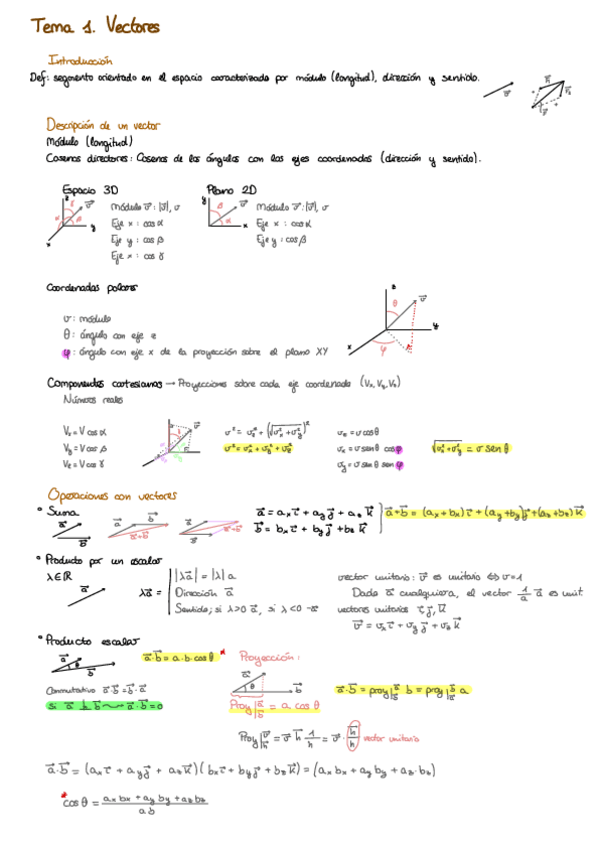 Tema 1. Vectores
Introducción
Def: segmento orientado en el espacio caracterizado por módulo (longitud), dirección y sentido.
Descripción de un vector
Módulo (longitud)
Cosenos directores: Cosenos de los ángulos con los ejes coordenados (dirección y sentido).
Espacio 3D
Módulo v⃗: |v⃗|, v
Eje x : cos α
Eje y : cos β
Eje x : cos γ
Plano 2D
Módulo v⃗: |v⃗|, v
Eje x : cos α
Eje y : cos β
Coordenadas polares
v : módulo
θ : ángulo con eje z
φ : ángulo con eje x de la proyección sobre el plano XY
Componentes cartesianas → Proyecciones sobre cada eje coordenado (Vx, Vy, Vz)
Números reales
Vx = V cos α
Vy = V cos β
Vz = V cos γ
v² = vz² + (√(vx² + vy²))²
v² = vx² + vy² + vz²
vz = v cos θ
vx = v sen θ cos φ
vy = v sen θ sen φ
√(vx² + vy²) = v sen θ
Operaciones con vectores
° Suma
a⃗ = ax i⃗ + ay j⃗ + az k⃗
b⃗ = bx i⃗ + by j⃗ + bz k⃗
a⃗ + b⃗ = (ax + bx) i⃗ + (ay + by) j⃗ + (az + bz) k⃗
° Producto por un escalar
λ ∈ ℝ
λa⃗ =
|λa⃗| = |λ| a
Dirección a⃗
Sentido; si λ>0 a⃗, si λ<0 -a⃗
vector unitario: v⃗ es unitario ⇔ v=1
Dado a⃗ cualquiera, el vector 1/a a⃗ es unit.
vectores unitarios i⃗, j⃗, k⃗
v⃗ = vx i⃗ + vy j⃗ + vz k⃗
° Producto escalar
a⃗·b⃗ = a·b·cos θ *
Conmutativo a⃗·b⃗ = b⃗·a⃗
Si a⃗ ⊥ b⃗ → a⃗·b⃗ = 0
Proyección:
Proy|a⃗ b⃗ = a cos θ
a⃗·b⃗ = proy|a⃗ b⃗ b = proy|b⃗ a⃗ a
Proy|v⃗ h⃗ = v⃗ h⃗ 1/h = v⃗ · h⃗/h vector unitario
a⃗·b⃗ = (ax i⃗ + ay j⃗ + az k⃗)(bx i⃗ + by j⃗ + bz k⃗) = (ax bx + ay by + az·bz)
* cos θ = (ax bx + ay by + az bz) / ab